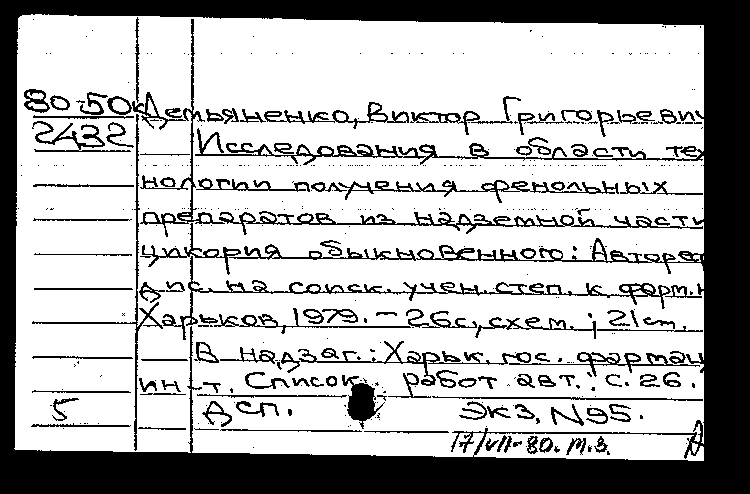 80-50к Демьяненко, Виктор Григорьевич
2432 Исследования в области тех
нологии получения фенольных
препаратов из надземной части
цикория обыкновенного: Автореф
дис. на соиск. учен. степ. к. фарм. н
Харьков, 1979. - 26с, схем. ; 21 cm.
В надзаг.: Харьк. гос. фармац
ин-т. Список работ авт.: с. 26.
5 Дсп. Экз. N95.
17/VII-80. М.З.